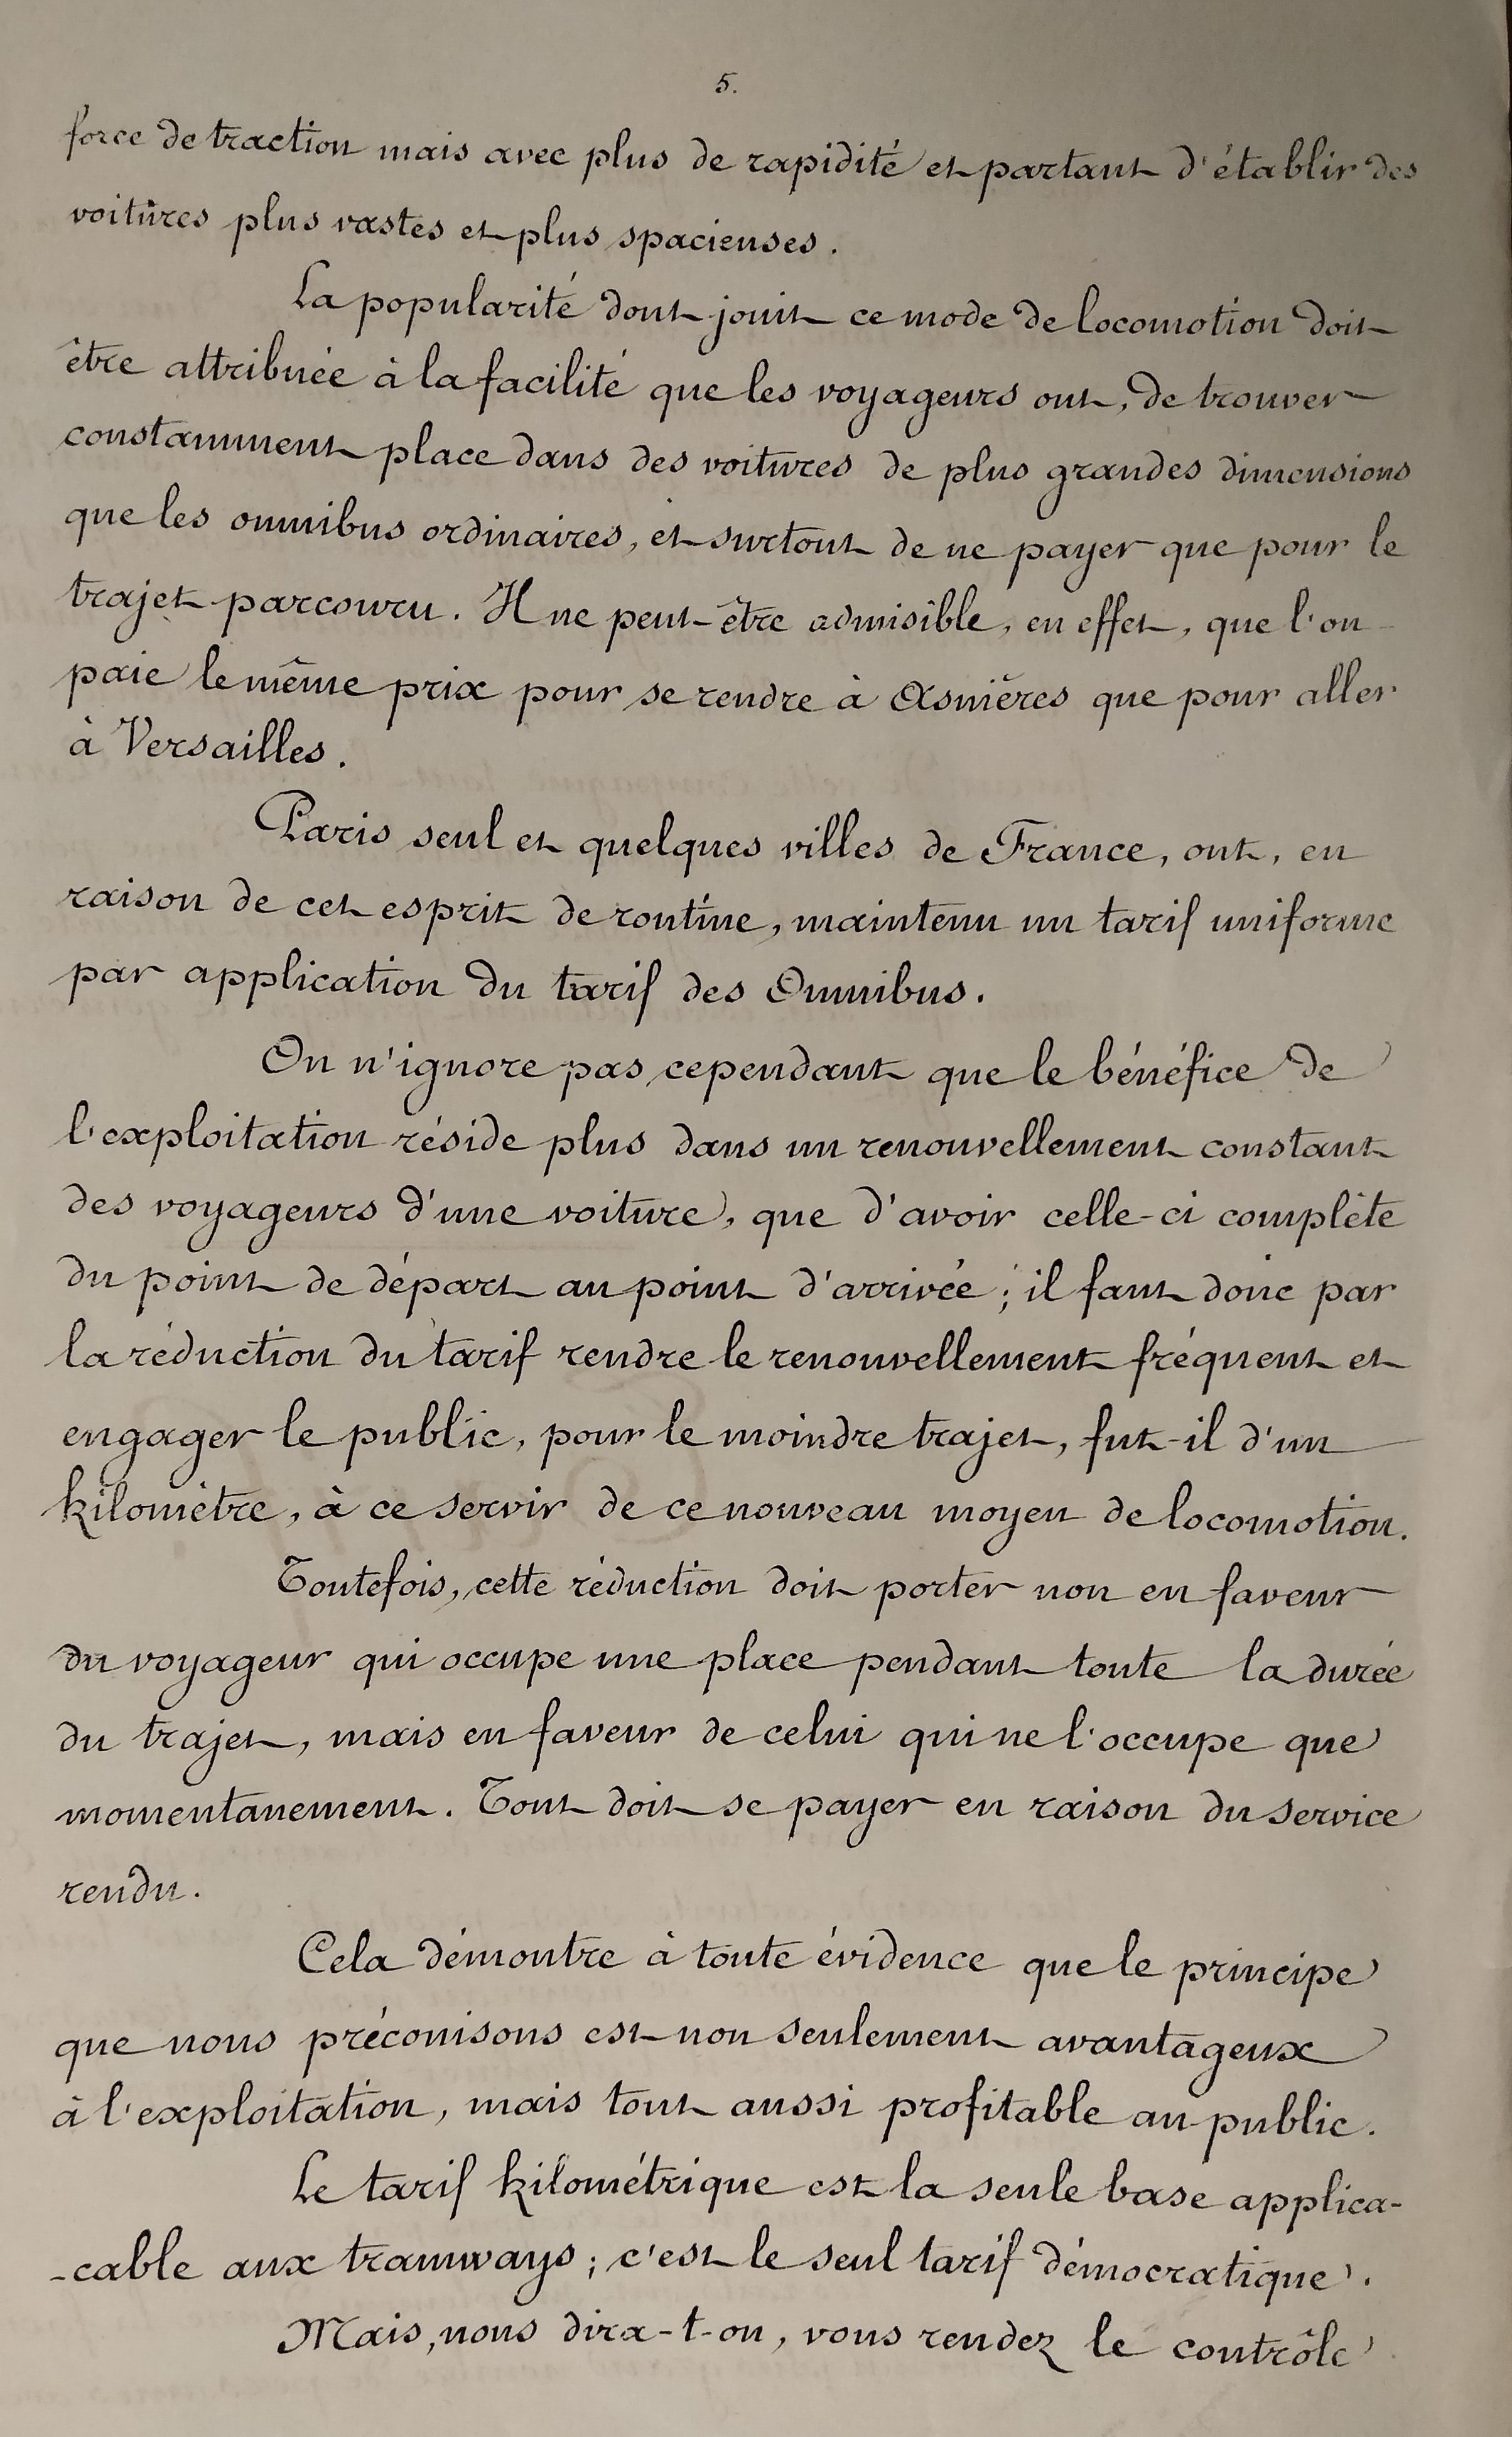 5.
force de traction mais avec plus de rapidité et partant d'établir des
voitures plus vastes et plus spacieuses.
La popularité dont jouit ce mode de locomotion doit
être attribuée à la facilité que les voyageurs ont, de trouver
constamment place dans des voitures de plus grandes dimensions
que les omnibus ordinaires, et surtout de ne payer que pour le
trajet parcouru. Il ne peut-être admisible, en effet, que l'on
paie le même prix pour se rendre à Asnières que pour aller
à Versailles.
Paris seul et quelques villes de France, ont, en
raison de cet esprit de routine, maintenu un tarif uniforme
par application du tarif des Omnibus.
On n'ignore pas cependant que le bénéfice de
l'exploitation réside plus dans un renouvellement constant
des voyageurs d'une voiture, que d'avoir celle-ci complète
du point de départ au point d'arrivée ; il faut donc par
la réduction du tarif rendre le renouvellement fréquent et
engager le public, pour le moindre trajet, fut-il d'un
kilomètre, à ce servir de ce nouveau moyen de locomotion.
Toutefois, cette réduction doit porter non en faveur
du voyageur qui occupe une place pendant toute la durée
du trajet, mais en faveur de celui qui ne l'occupe que
momentanement. Tout doit se payer en raison du service
rendu.
Cela démontre à toute évidence que le principe
que nous préconisons est non seulement avantageux
à l'exploitation, mais tout aussi profitable au public.
Le tarif kilométrique est la seule base applica-
-cable aux tramways ; c'est le seul tarif démocratique.
Mais, nous dira-t-on, vous rendez le contrôle